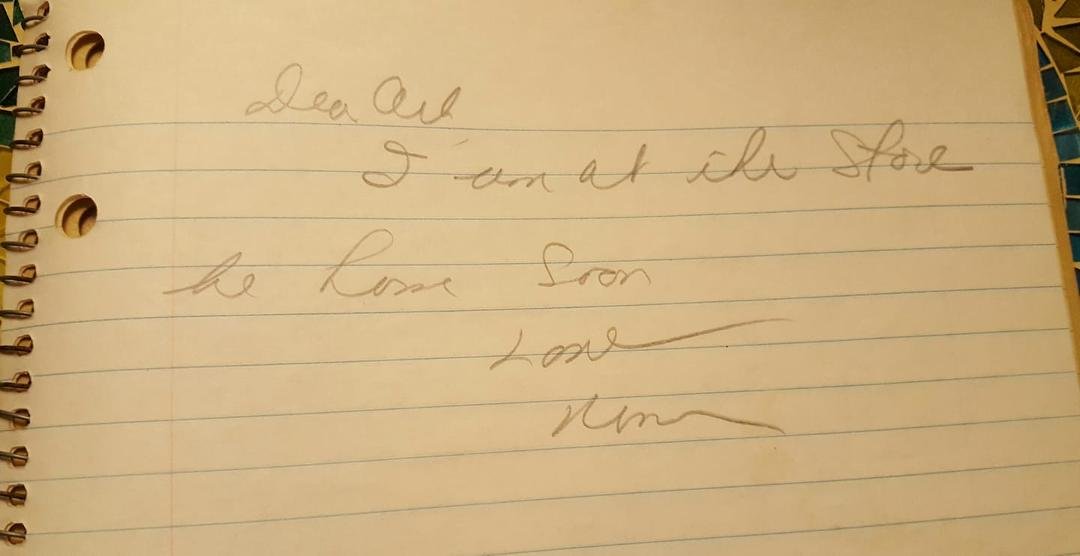 Dear
I am at the Store
be home Soon
Love